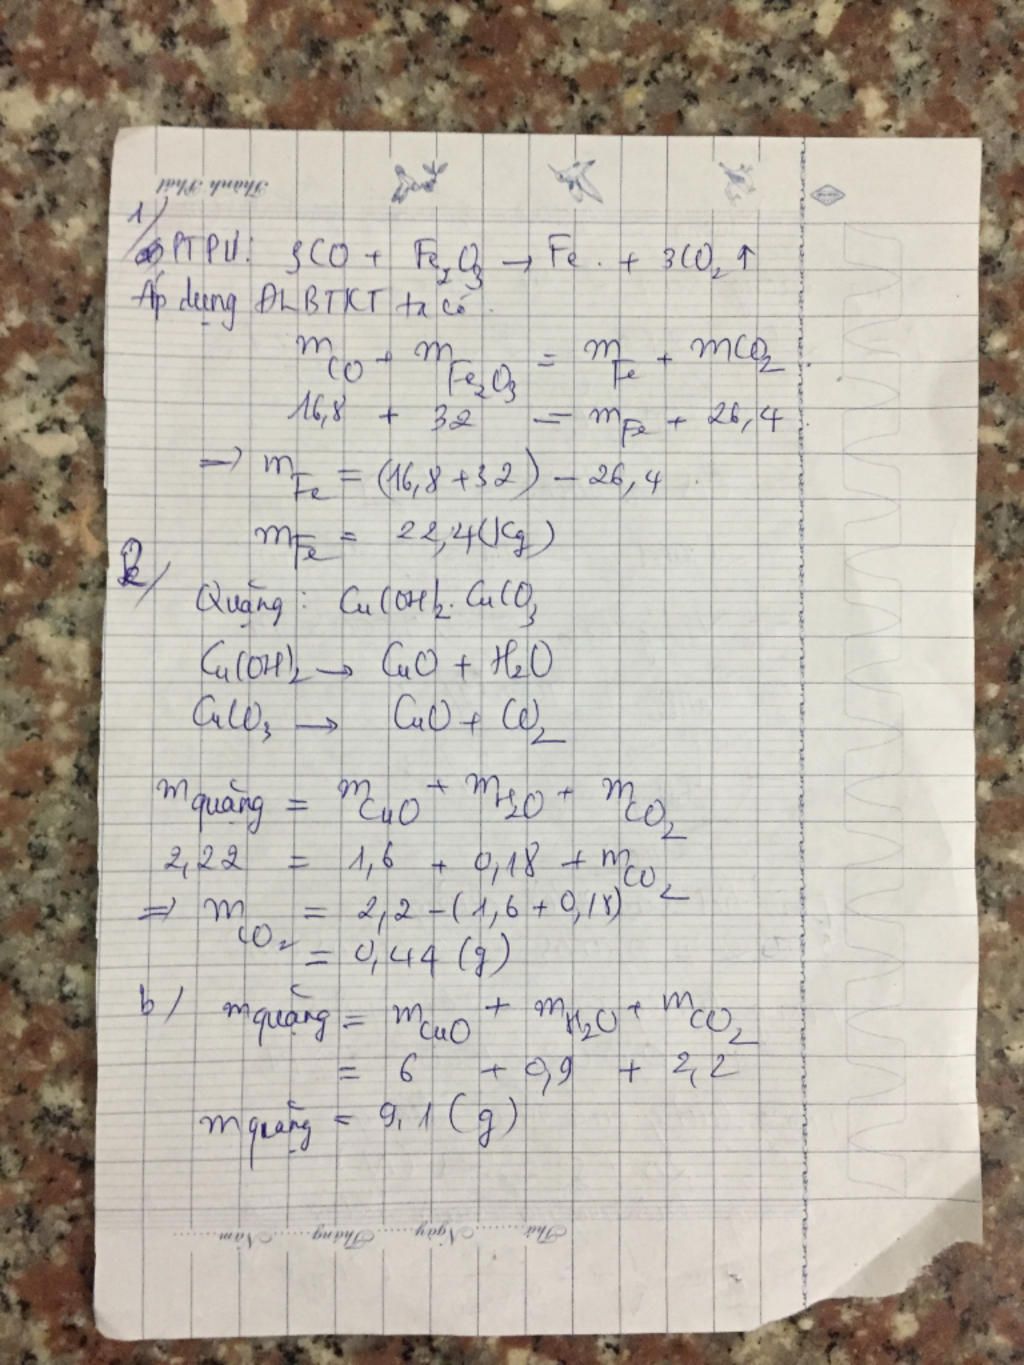 Thành Phát
1/
PTPƯ: 3CO + Fe2O3 → Fe. + 3CO2 ↑
Áp dụng ĐLBTKT ta có.
mCO + mFe2O3 = mFe + mCO2
16,8 + 32 = mFe + 26,4
=> mFe = (16,8 + 32) - 26,4
mFe = 22,4 (Kg)
2/
Quặng: Cu(OH)2.CuCO3
Cu(OH)2 → CuO + H2O
CuCO3 → CuO + CO2
mquặng = mCuO + mH2O + mCO2
2,22 = 1,6 + 0,18 + mCO2
=> mCO2 = 2,2 - (1,6 + 0,18)
= 0,44 (g)
b/ mquặng = mCuO + mH2O + mCO2
= 6 + 0,9 + 2,2
mquặng = 9,1 (g)
Thứ.........Ngày.........Tháng.........Năm.........